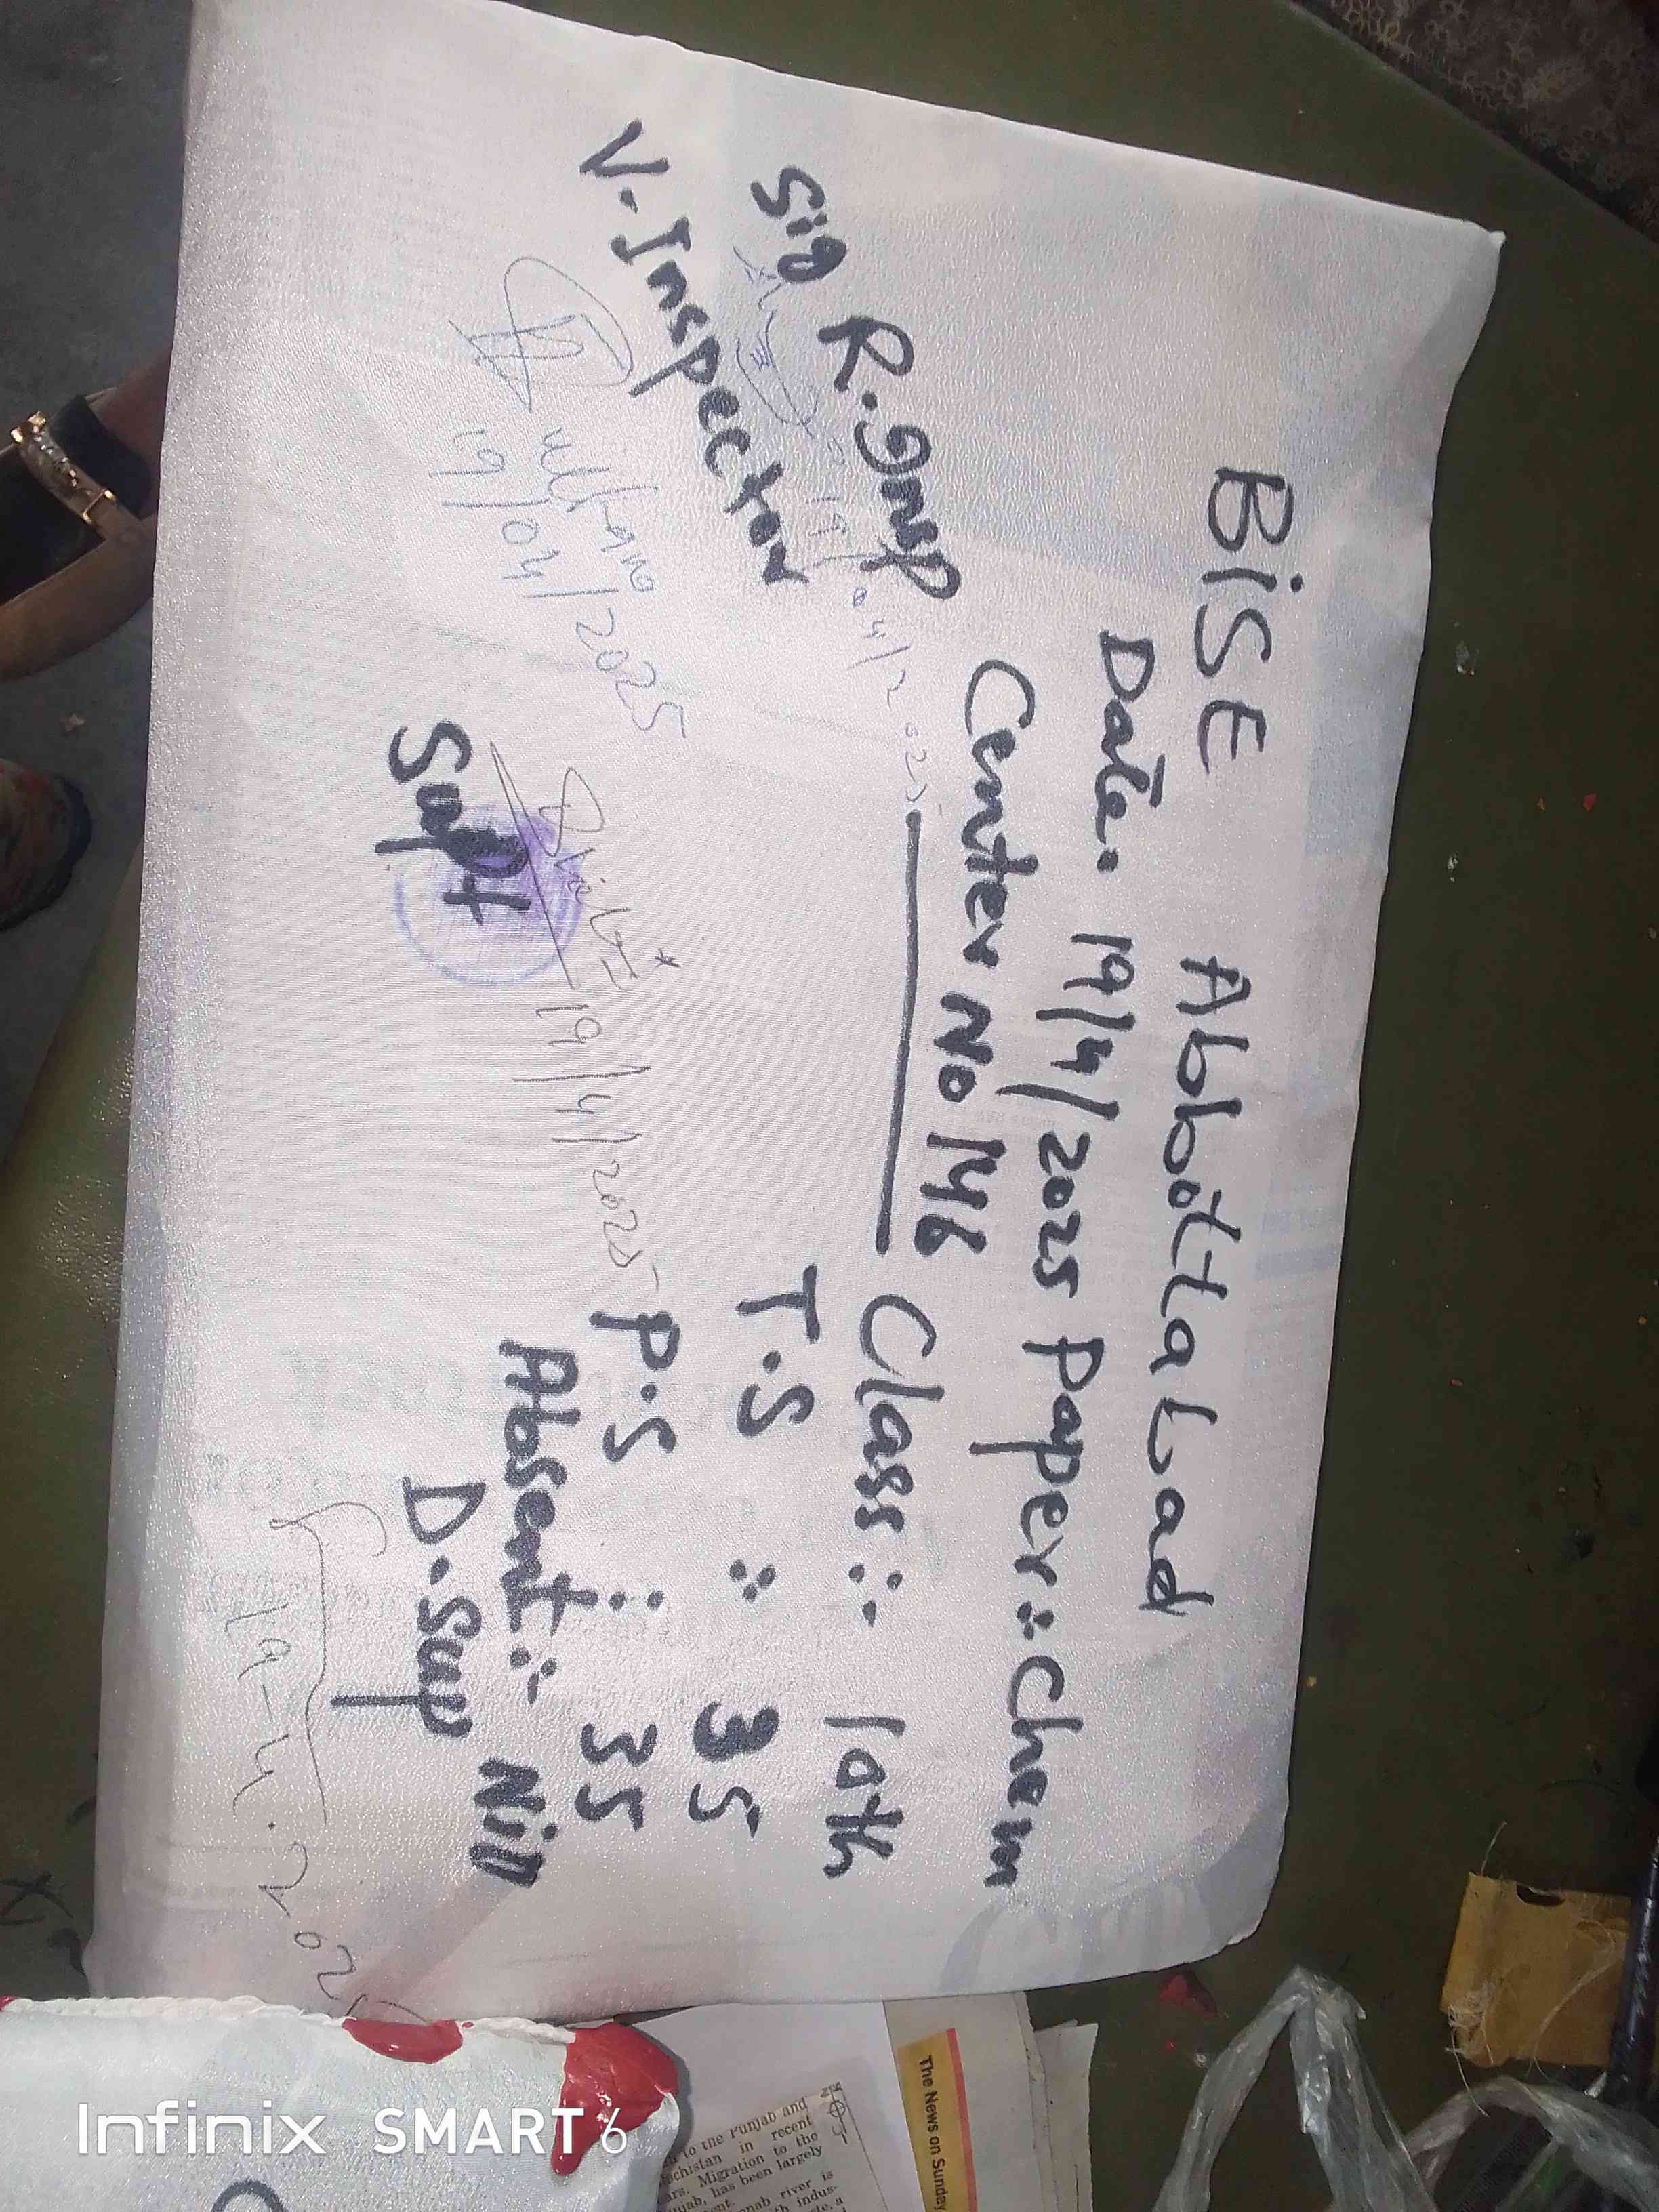 BISE Abbottabad
Date. 19/4/2025 Paper:- Chem
Center No 146
Class :- 10th
T.S : 35
P.S : 35
Absent :- Nill
Sig R.Insp
19.04/2025
V. Inspector
19/04/2025
Supt
19/4/2025
D.Sup
19-4-2025
The News on Sunday
to the Punjab and
in recent
Migration to the
has been largely
river is
Infinix SMART 6